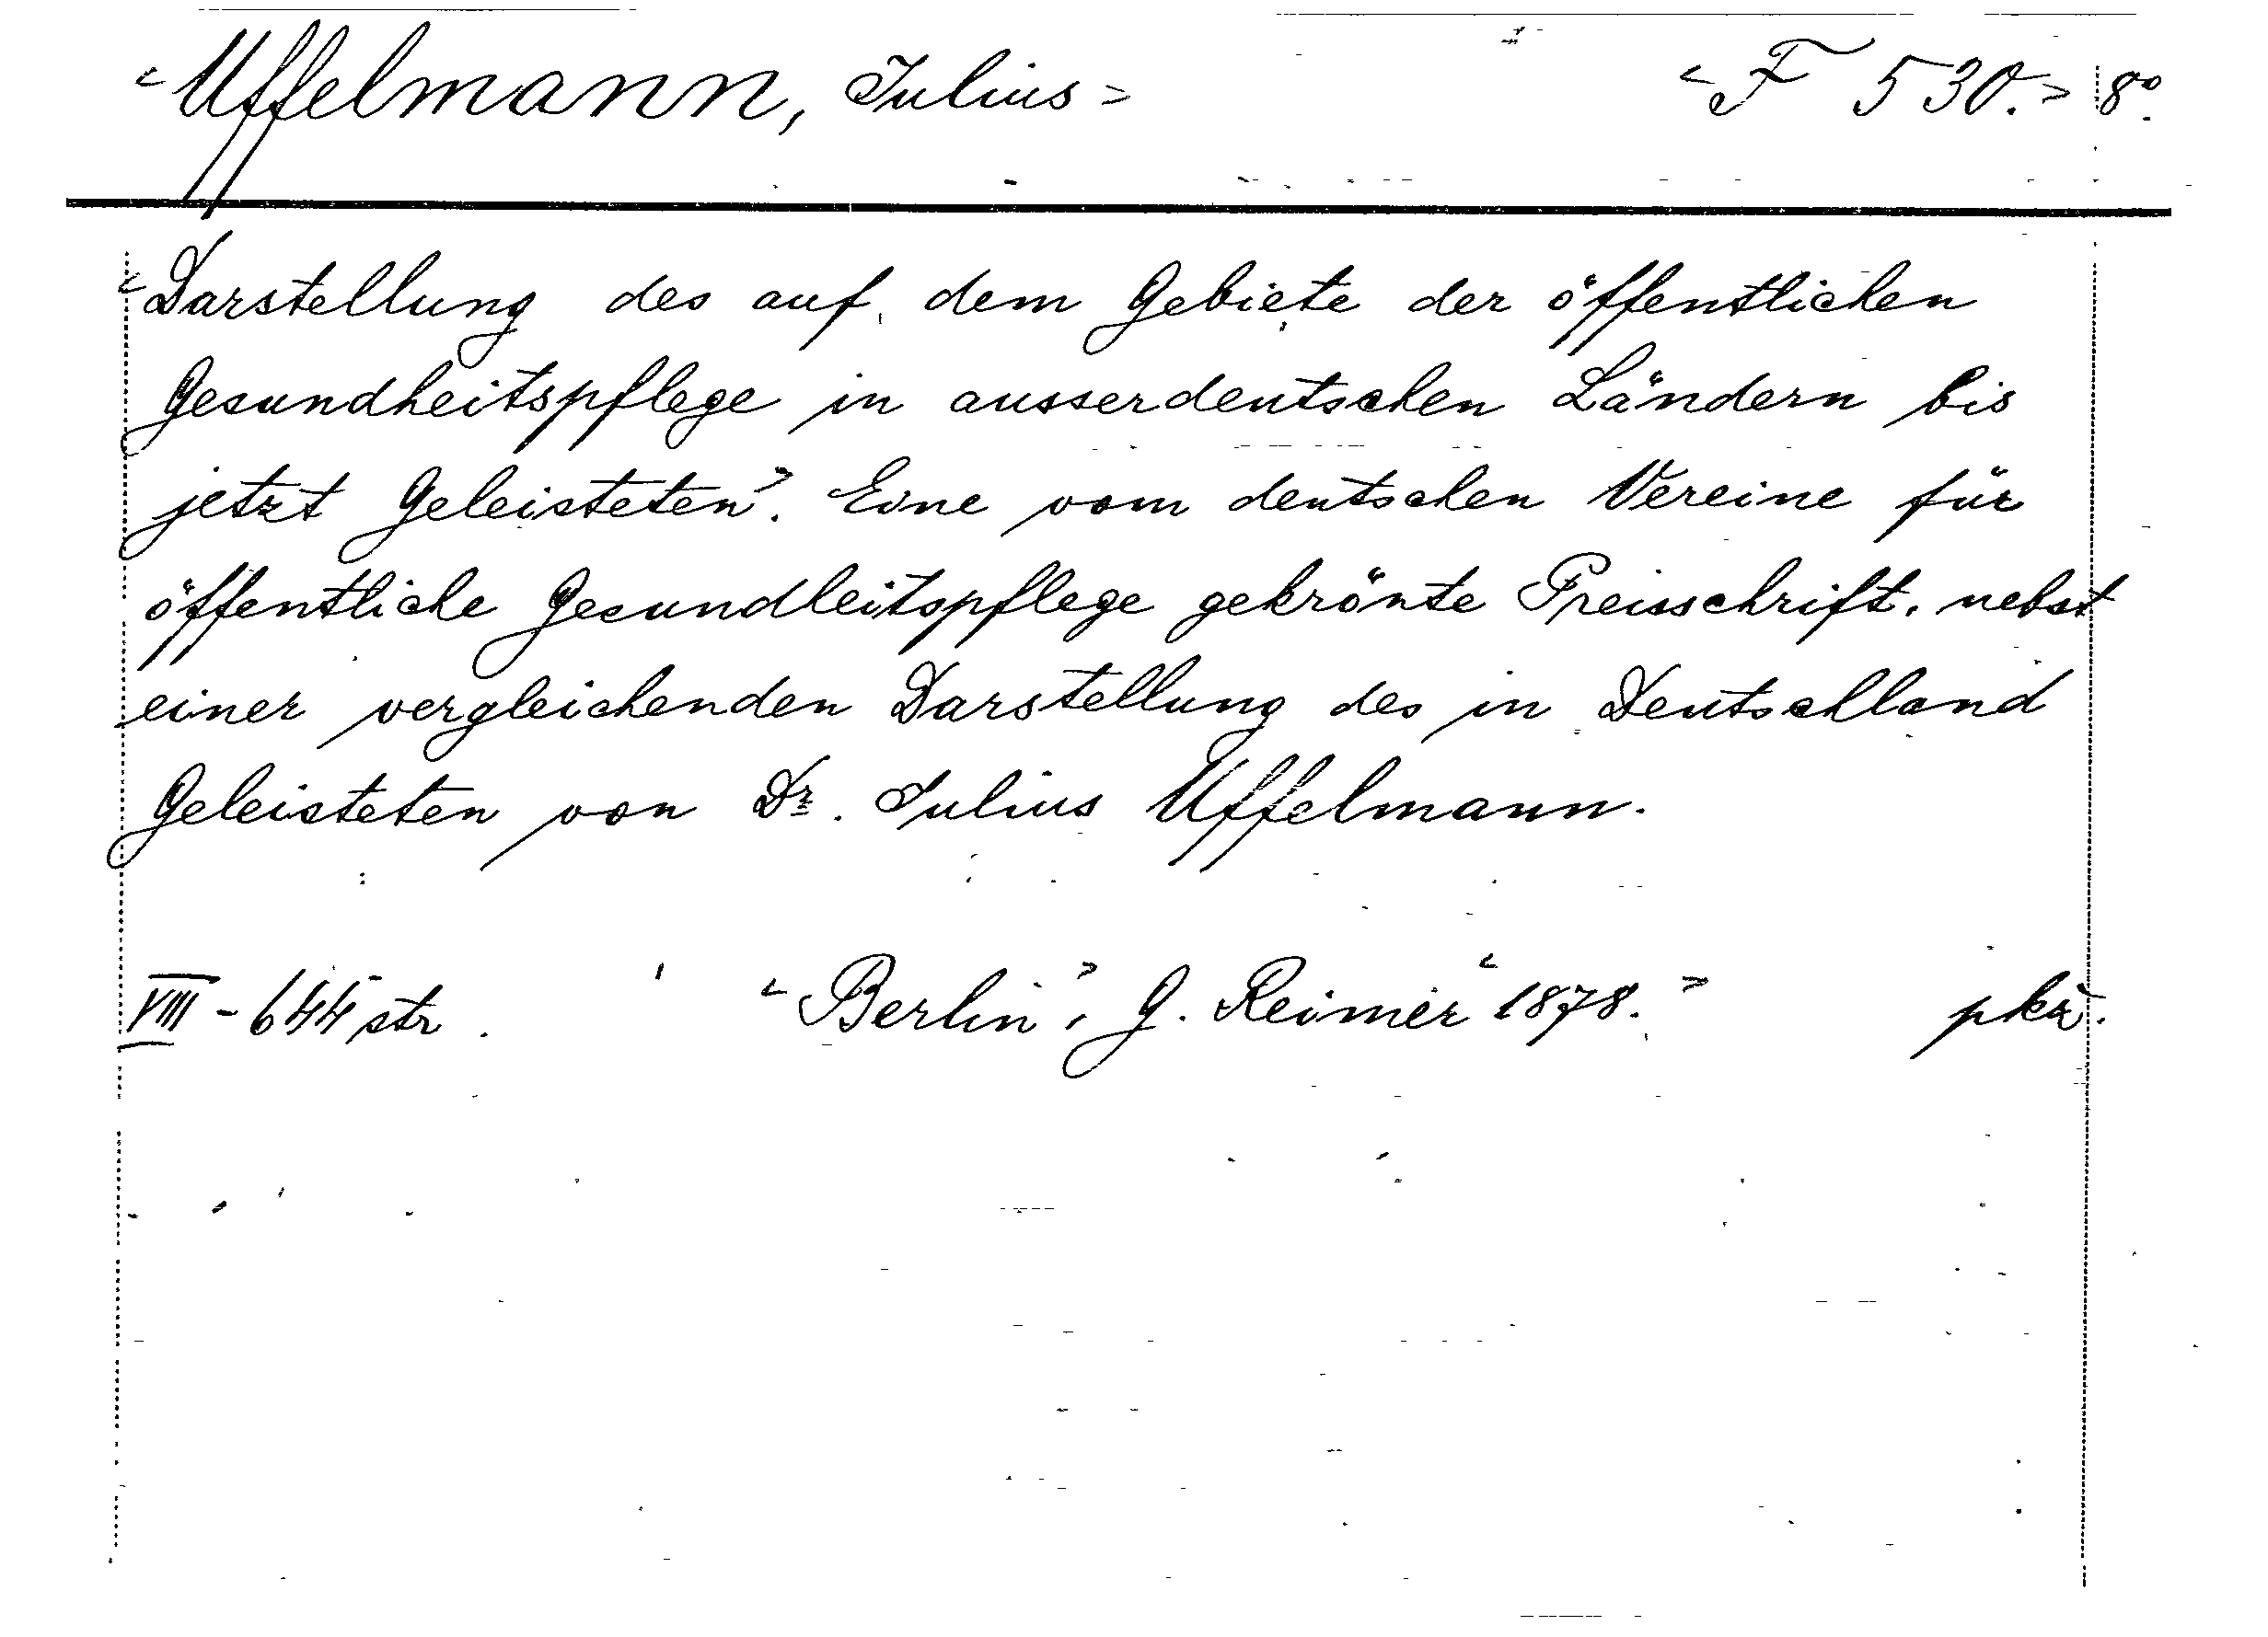 <Uffelmann, Julius>
<F 530.> 8°.
<Darstellung des auf dem Gebiete der öffentlichen
Gesundheitspflege in ausserdeutschen Ländern bis
jetzt Geleisteten>. Eine vom deutschen Vereine für
öffentliche Gesundheitspflege gekrönte Preisschrift. nebst
einer vergleichenden Darstellung des in Deutschland
Geleisteten von Dr. Julius Uffelmann.
VIII - 644 str. <Berlin>, G. Reimer <1878.>